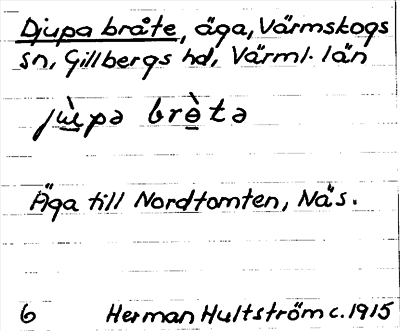 Djupa bråte, äga, Värmskogs
sn, Gillbergs hd, Värml. län
jùpə brètə
Äga till Nordtomten, Näs.
6 Herman Hultström c. 1915